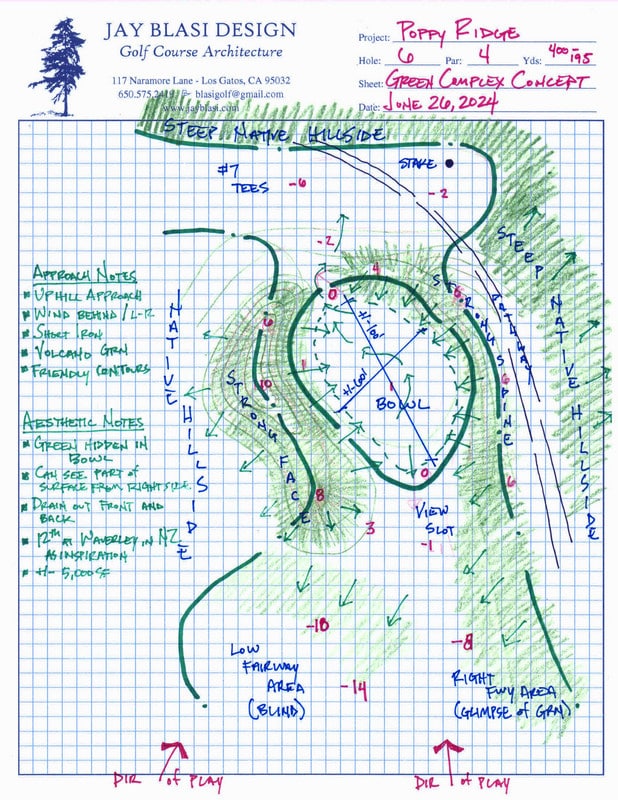 JAY BLASI DESIGN
Golf Course Architecture
117 Naramore Lane - Los Gatos, CA 95032
650.575.2419 blasigolf@gmail.com
www.jayblasi.com
Project: POPPY RIDGE
Hole: 6 Par: 4 Yds: 400-195
Sheet: GREEN COMPLEX CONCEPT
Date: JUNE 26, 2024
STEEP NATIVE HILLSIDE
#7
TEES
-6
STAKE
-2
-2
STEEP NATIVE HILLSIDE
PATHWAY
0
4
5
STRONG SPINE
6
6
APPROACH NOTES
UPHILL APPROACH
WIND BEHIND / L-R
SHORT IRON
VOLCANO GRN
FRIENDLY CONTOURS
NATIVE HILLSIDE
6
10
STRONG FACE
8
3
1
+/-100'
+/-60'
1
BOWL
0
VIEW
SLOT
-1
AESTHETIC NOTES
GREEN HIDDEN IN
BOWL
CAN SEE PART OF
SURFACE FROM RIGHT SIDE.
DRAIN OUT FRONT AND
BACK
12TH AT WAVERLEY IN NZ
AS INSPIRATION
+/- 5,000 SF
-18
-8
LOW
FAIRWAY
AREA
(BLIND)
-14
RIGHT
FWY AREA
(GLIMPSE OF GRN)
DIR of PLAY
DIR of PLAY